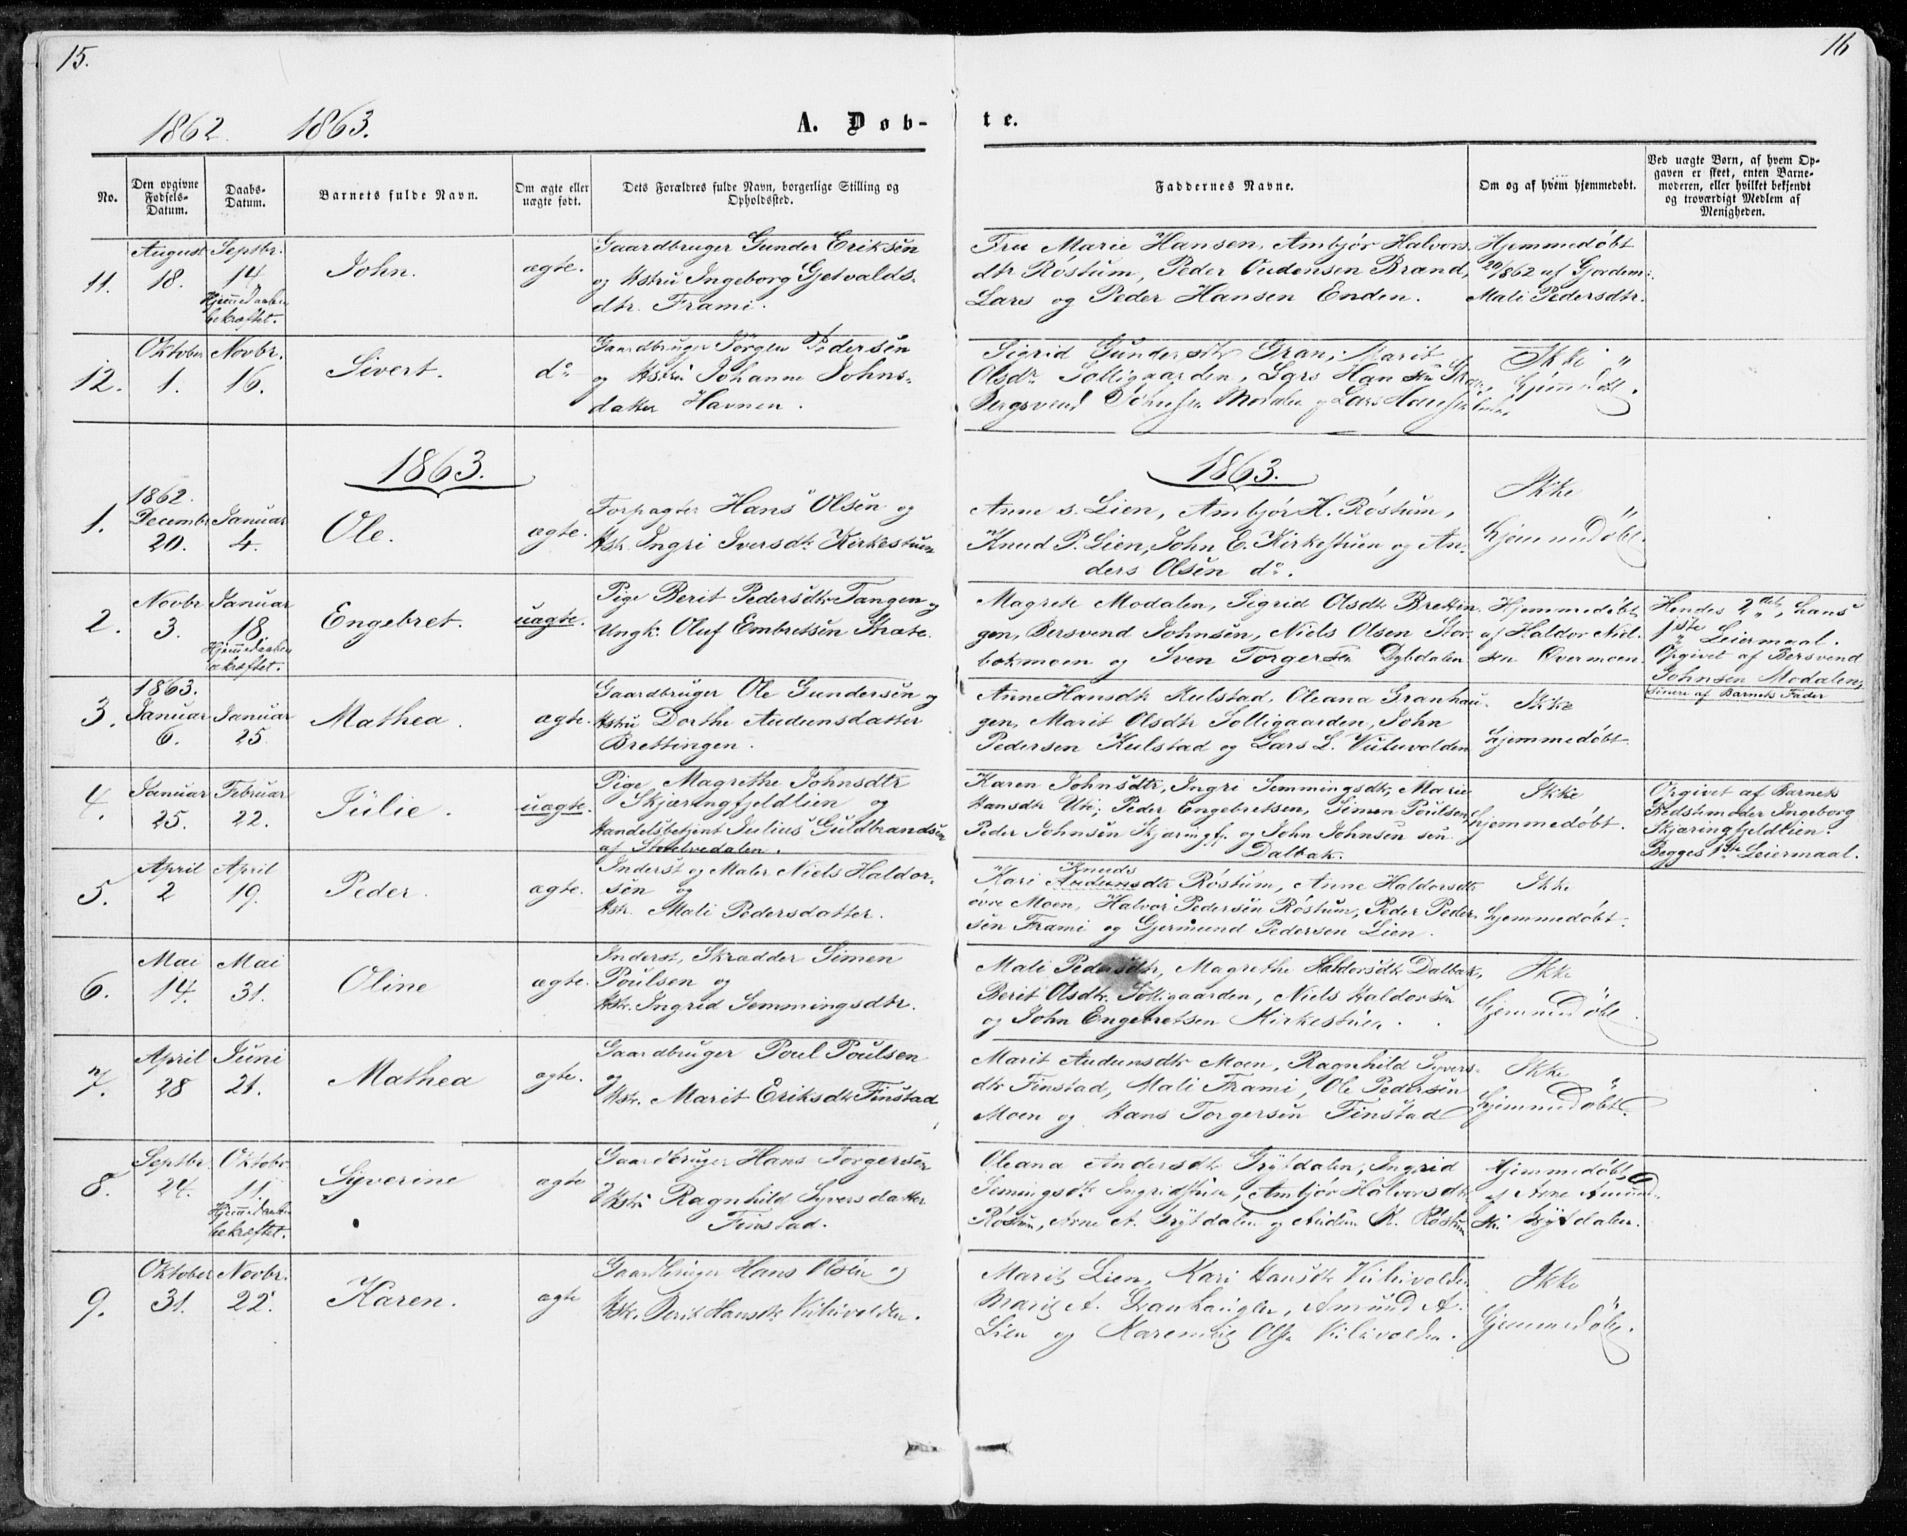 15.
16
1862. 1863.
A. Døb-
te.
No.
Den opgivne Fødsels-Datum.
Daabs-Datum.
Barnets fulde Navn.
Om ægte eller uægte født.
Dets Forældres fulde Navn, borgerlige Stilling og Opholdssted.
Faddernes Navne.
Om og af hvem hjemmedøbt.
Ved uægte Børn, af hvem Opgaven er skeet, enten Barnemoderen, eller hvilket bekjendt og troværdigt Medlem af Menigheden.
11.
August
18.
Septbr.
14
Hjemmedaaben
bekræftet.
John.
ægte.
Gaardbruger Gunder Eriksen
og Hstru Ingeborg Gjetvalds-
dtr. Frami.
Fru Marie Hansen, Ambjør Halvors
dtr Røstum, Peder Oudensen Brand,
Lars og Peder Hansen Enden.
Hjemmedøbt
20/862 af Gjordem:
Mali Pedersdtr.
12.
Oktober
1.
Novbr.
16.
Sivert.
do
Gaardbruger Jørgen Pedersen
og Hstru Johanne Johns-
datter Havnen.
Sigrid Gundersdtr Gran, Marit
Olsdtr Solligaarden, Lars Han
Bersvend Johnsen og Lars
Ikke
hjemmedøbt.
1863.
1863.
1.
1862.
Decembr
20.
Januar
4.
Ole.
ægte.
Forpagter Hans Olsen og
Hstr. Ingri Iversdtr Kirkestuen
Anne s. Lien, Ambjør H. Røstum,
Knud P. Lien, John E. Kirkestuen og An-
ders Olsen do.
Ikke
hjemmedøbt.
2.
Novbr
3.
Januar
18.
Hjemmedaaben
bekræftet.
Engebret.
uægte.
Pige Berit Pedersdtr Tangen og
Ungk: Oluf Embretsen Stræte.
Magrete Modalen, Sigrid Olsdtr Brettin
gen, Bersvend Johnsen, Niels Olsen Stor-
bækmoen og Sven Torgersen Dybdalen
Hjemmedøbt
af Haldor Niel-
sen Øvermoen
Hendes 2det, hans
1ste Leiermaal.
Opgivet af Bersvend
Johnsen Modalen,
senere af Barnets Fader
3.
1863.
Januar
6.
Januar
25.
Mathea.
ægte.
Gaardbruger Ole Gundersen og
Hstru Dorthe Audunsdatter
Brettingen.
Anne Hansdtr Kulstad, Oleana Granhau-
gen, Marit Olsdtr Solligaarden, John
Pedersen Kulstad og Lars L. Viulivolden
Ikke
hjemmedøbt.
4.
Januar
25.
Februar
22.
Julie.
uægte.
Pige Magrethe Johnsdtr
Skjæringfjeldlien og
Handelsbetjent Julius Guldbrandsen
af
Karen Johnsdtr, Ingri Semmingsdtr, Marie
Hansdtr Utti, Peder Engebretsen, Simen Poulsen,
Peder Johnsen Skjæringf. og John Johnsen sen
Dalbak.
Ikke
hjemmedøbt.
Opgivet af Barnets
Bedstemoder Ingeborg
Skjæringfjeldlien.
Begges 1ste Leiermaal.
5.
April
2
April
19.
Peder.
ægte.
Inderst og Maler Niels Haldor-
sen og
Hstr. Mali Pedersdatter.
Knuds
Kari Audunsdtr Røstum, Anne Haldorsdtr
øvre Moen, Halvor Pedersen Røstum, Peder Peder-
sen Frami og Gjermund Pedersen Lien.
Ikke
hjemmedøbt.
6.
Mai
14.
Mai
31.
Oline
ægte.
Inderst, Skrædder Simen
Poulsen og
Hstr. Ingrid Semmingsdtr.
Mali Pedersdtr, Magrethe Haldorsdtr Dalbak,
Berit Olsdtr. Solligaarden, Niels Haldorsen
og John Engebretsen Kirkestuen.
Ikke
hjemmedøbt.
7.
April
28
Juni
21.
Mathea
ægte.
Gaardbruger Poul Poulsen
og
Hstr. Marit Eriksdtr Finstad
Marit Audunsdtr Moen, Ragnhild Syvers-
dtr Finstad, Mali Frami, Ole Pedersen
Moen og Hans Torgersen Finstad
Ikke
hjemmedøbt.
8.
Septbr.
24.
Oktobr
11.
Hjemmedaaben
bekræftet.
Syverine
ægte
Gaardbruger Hans Torgersen
Hstru Ragnhild Syversdatter
Finstad.
Oleana Andersdtr Grytdalen, Ingrid
Semingsdtr Ingridstuen, Ambjør Halvorsdtr
Røstum, Arne A. Grytdalen og Audun K. Røstum
Hjemmedøbt
af Arne Amund-
sen Grytdalen.
9.
Oktober
31.
Novbr.
22.
Karen.
ægte
Gaardbruger Hans Olsen og
Hstr. Berit Hansdtr Viulivolden.
Marit Lien, Kari Hansdtr Viulivolden
Marit A. Granhaugen, Amund A.
Lien og Olsen Viulivolden.
Ikke
hjemmedøbt.